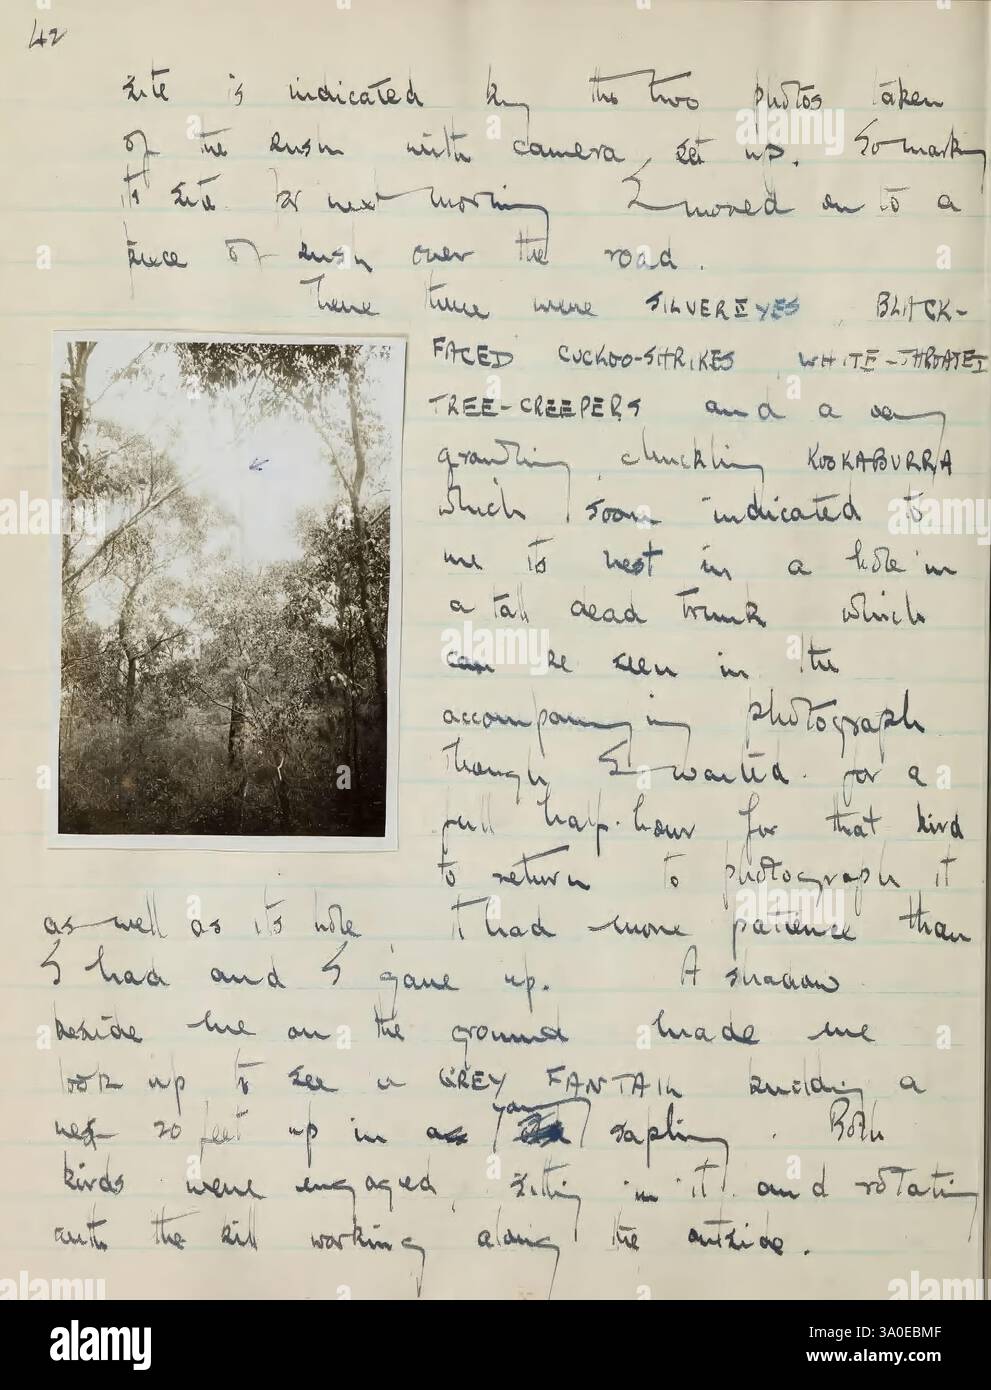 42
site is indicated by the two photos taken
of the bush with camera set up. So marking
its site for next morning I moved on to a
piece of bush over the road.
Here there were SILVEREYES, BLACK-
FACED CUCKOO-SHRIKES, WHITE-THROATED
TREE-CREEPERS and a very
chuckling KOOKABURRA
which soon indicated to
me its nest in a hole in
a tall dead trunk which
can be seen in the
accompanying photograph
though I waited for a
full half-hour for that bird
to return to photograph it
as well as its hole. It had more patience than
I had and I gave up. A shadow
beside me on the ground made me
look up to see a GREY FANTAIL building a
nest 20 feet up in a young sapling. Both
birds were engaged, sitting in it and rotating
with the bill working along the outside.
alamy
Image ID: 3A0EBMF
www.alamy.com